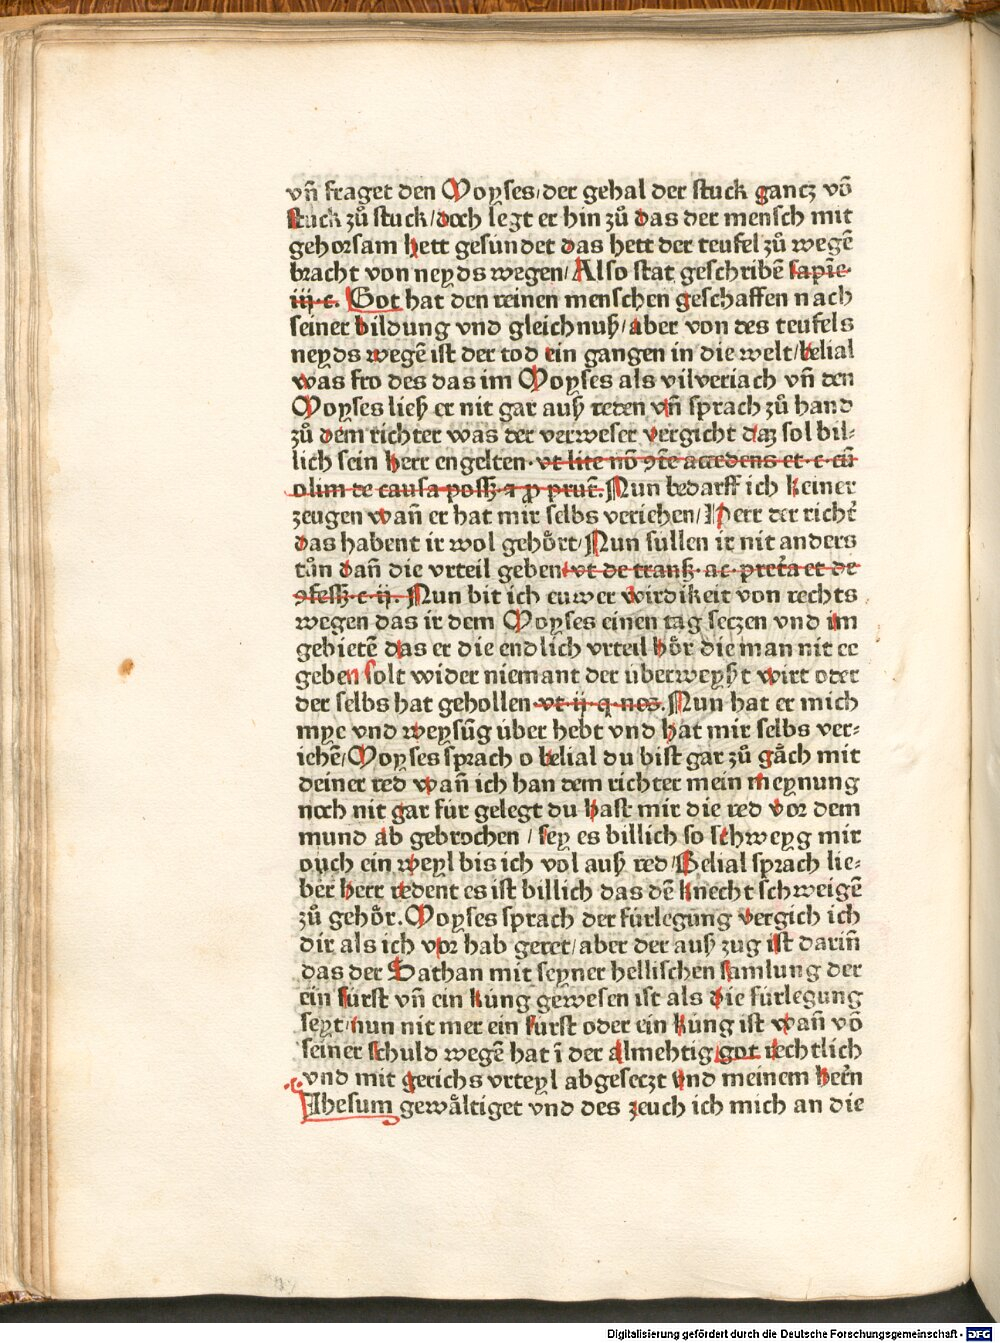 vn̄ fraget den Moyses/der gehal der stuck gancz vō
stuck zů stuck/doch legt er hin zů das der mensch mit
gehorsam hett gesundet das hett der teufel zů wegē
bracht von neyds wegen/Also stat geschribē sapie·
iij·c. Got hat den reinen menschen geschaffen nach
seiner bildung vnd gleichnuß/aber von des teufels
neyds wegē ist der tod ein gangen in die welt/belial
was fro des das im Moyses als vilveriach vn̄ den
Moyses ließ er nit gar auß reden vn̄ sprach zů hand
zů dem richter was der verweser vergicht daz sol bil⸗
lich sein herr engelten·vt lite nō ꝯte accedens et·c·cū
olim de causa poss̄·q ꝓ prut̄.Nun bedarff ich keiner
zeugen wan̄ er hat mir selbs veriehen/Herr der richt̄
das habent ir wol gehȯrt/Nun sullen ir nit anders
tůn dan̄ die vrteil geben·vt de trans̄·ac·pret̄a et de
ꝯfess̄·c·ij·Nun bit ich euwer wirdikeit von rechts
wegen das ir dem Moyses einen tag seczen vnd im
gebietē das er die endlich vrteil hȯr die man nit ee
geben solt wider niemant der uberweyßt wirt oder
der selbs hat gehollen·vt·ij·q·nos̄.Nun hat er mich
mye vnd weysūg uber hebt vnd hat mir selbs ver⸗
iehē/Moyses sprach o belial du bist gar zů gåch mit
deiner red wan̄ ich han dem richter mein meynung
noch nit gar fur gelegt du hast mir die red vor dem
mund ab gebrochen/sey es billich so schweyg mir
ouch ein weyl bis ich vol auß red/Belial sprach lie⸗
ber herr redent es ist billich das dē knecht schweigē
zů gehȯr.Moyses sprach der fürlegūng vergich ich
dir als ich vor hab geret/aber der auß zug ist darin̄
das der Sathan mit seyner hellischen samlung der
ein fürst vn̄ ein kung gewesen ist als die fürlegung
seyt/nun nit mer ein furst oder ein kung ist wan̄ vō
seiner schuld wegē hat ī der almehtig got rechtlich
vnd mit gerichs vrteyl abgeseczt vnd meinem her̄n
Jhesum gewåltiget vnd des zeuch ich mich an die
Digitalisierung gefördert durch die Deutsche Forschungsgemeinschaft - DFG